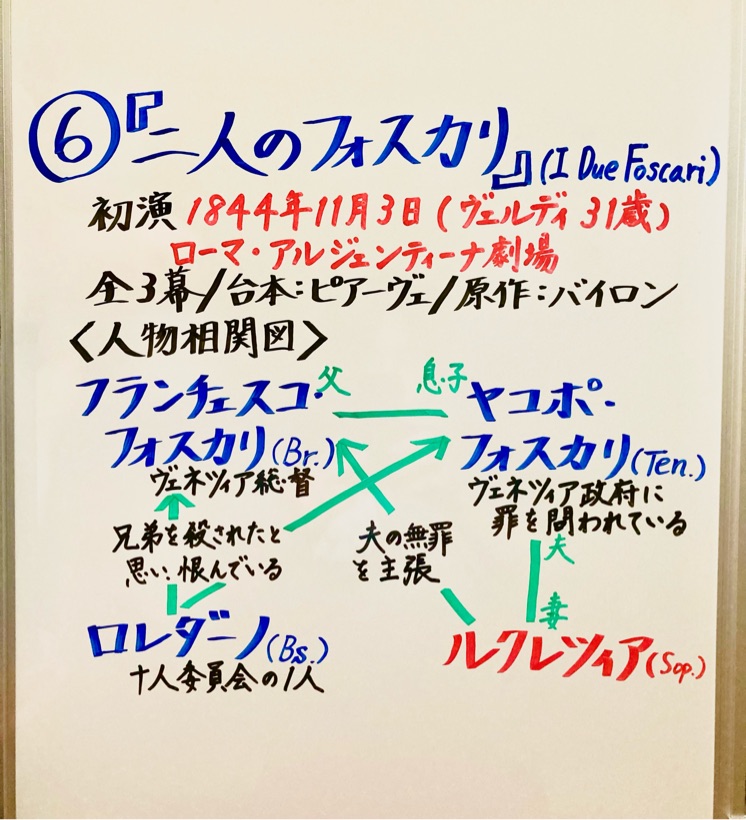 ⑥『二人のフォスカリ』(I Due Foscari)
初演 1844年11月3日(ヴェルディ 31歳)
ローマ・アルジェンティーナ劇場
全3幕/台本:ピアーヴェ/原作:バイロン
〈人物相関図〉
フランチェスコ・
フォスカリ(Br.)
ヴェネツィア総督
父
息子
ヤコポ・
フォスカリ(Ten.)
ヴェネツィア政府に
罪を問われている
兄弟を殺されたと
思い、恨んでいる
夫の無罪
を主張
夫
妻
ロレダーノ(Bs.)
十人委員会の1人
ルクレツィア(Sop.)